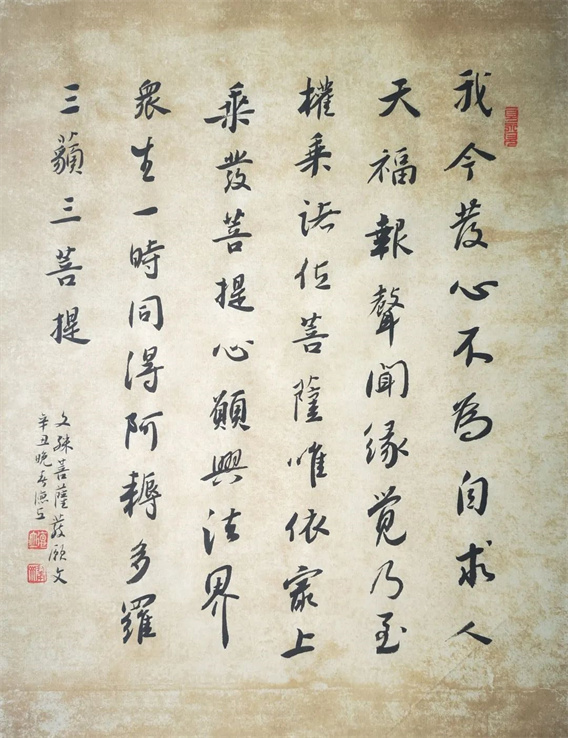 我今发心不為自求人
天福報聲聞缘觉乃至
權乘诸位菩薩唯依冣上
乘发菩提心願與法界
衆生一時同得阿耨多羅
三藐三菩提
文殊菩薩发願文
辛丑晚春